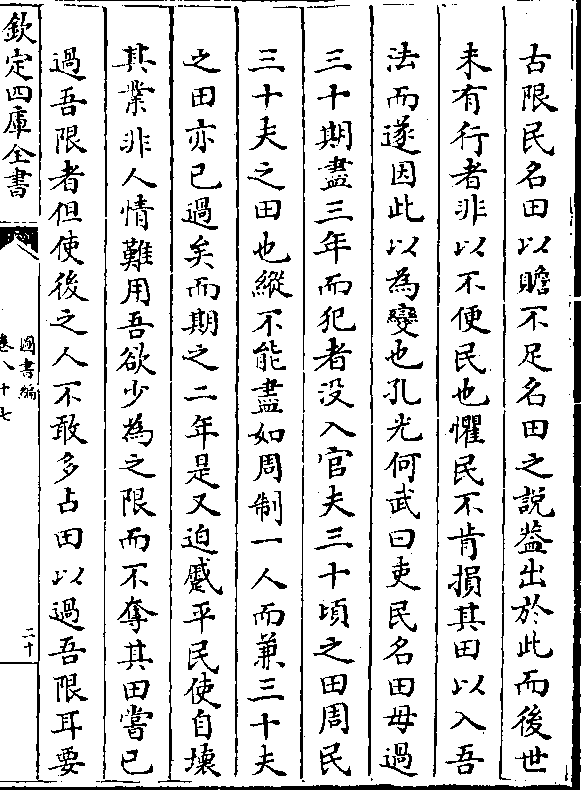 古限民名田以贍不足名田之説葢出於此而後世
未有行者非以不便民也懼民不肯損其田以入吾
法而遂因此以為變也孔光何武曰吏民名田毋過
三十期盡三年而犯者没入官夫三十頃之田周民
三十夫之田也縱不能盡如周制一人而兼三十夫
之田亦已過矣而期之二年是又迫蹙平民使自壊
其業非人情難用吾欲少為之限而不奪其田嘗已
過吾限者但使後之人不敢多占田以過吾限耳要
欽定四庫全書
圖書編
卷八十七
二十